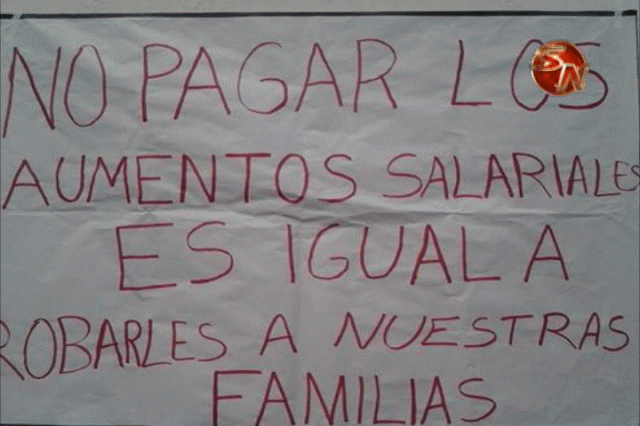 NO PAGAR LOS
SN
AUMENTOS SALARIALES
ES IGUAL A
ROBARLES A NUESTRAS
FAMILIAS